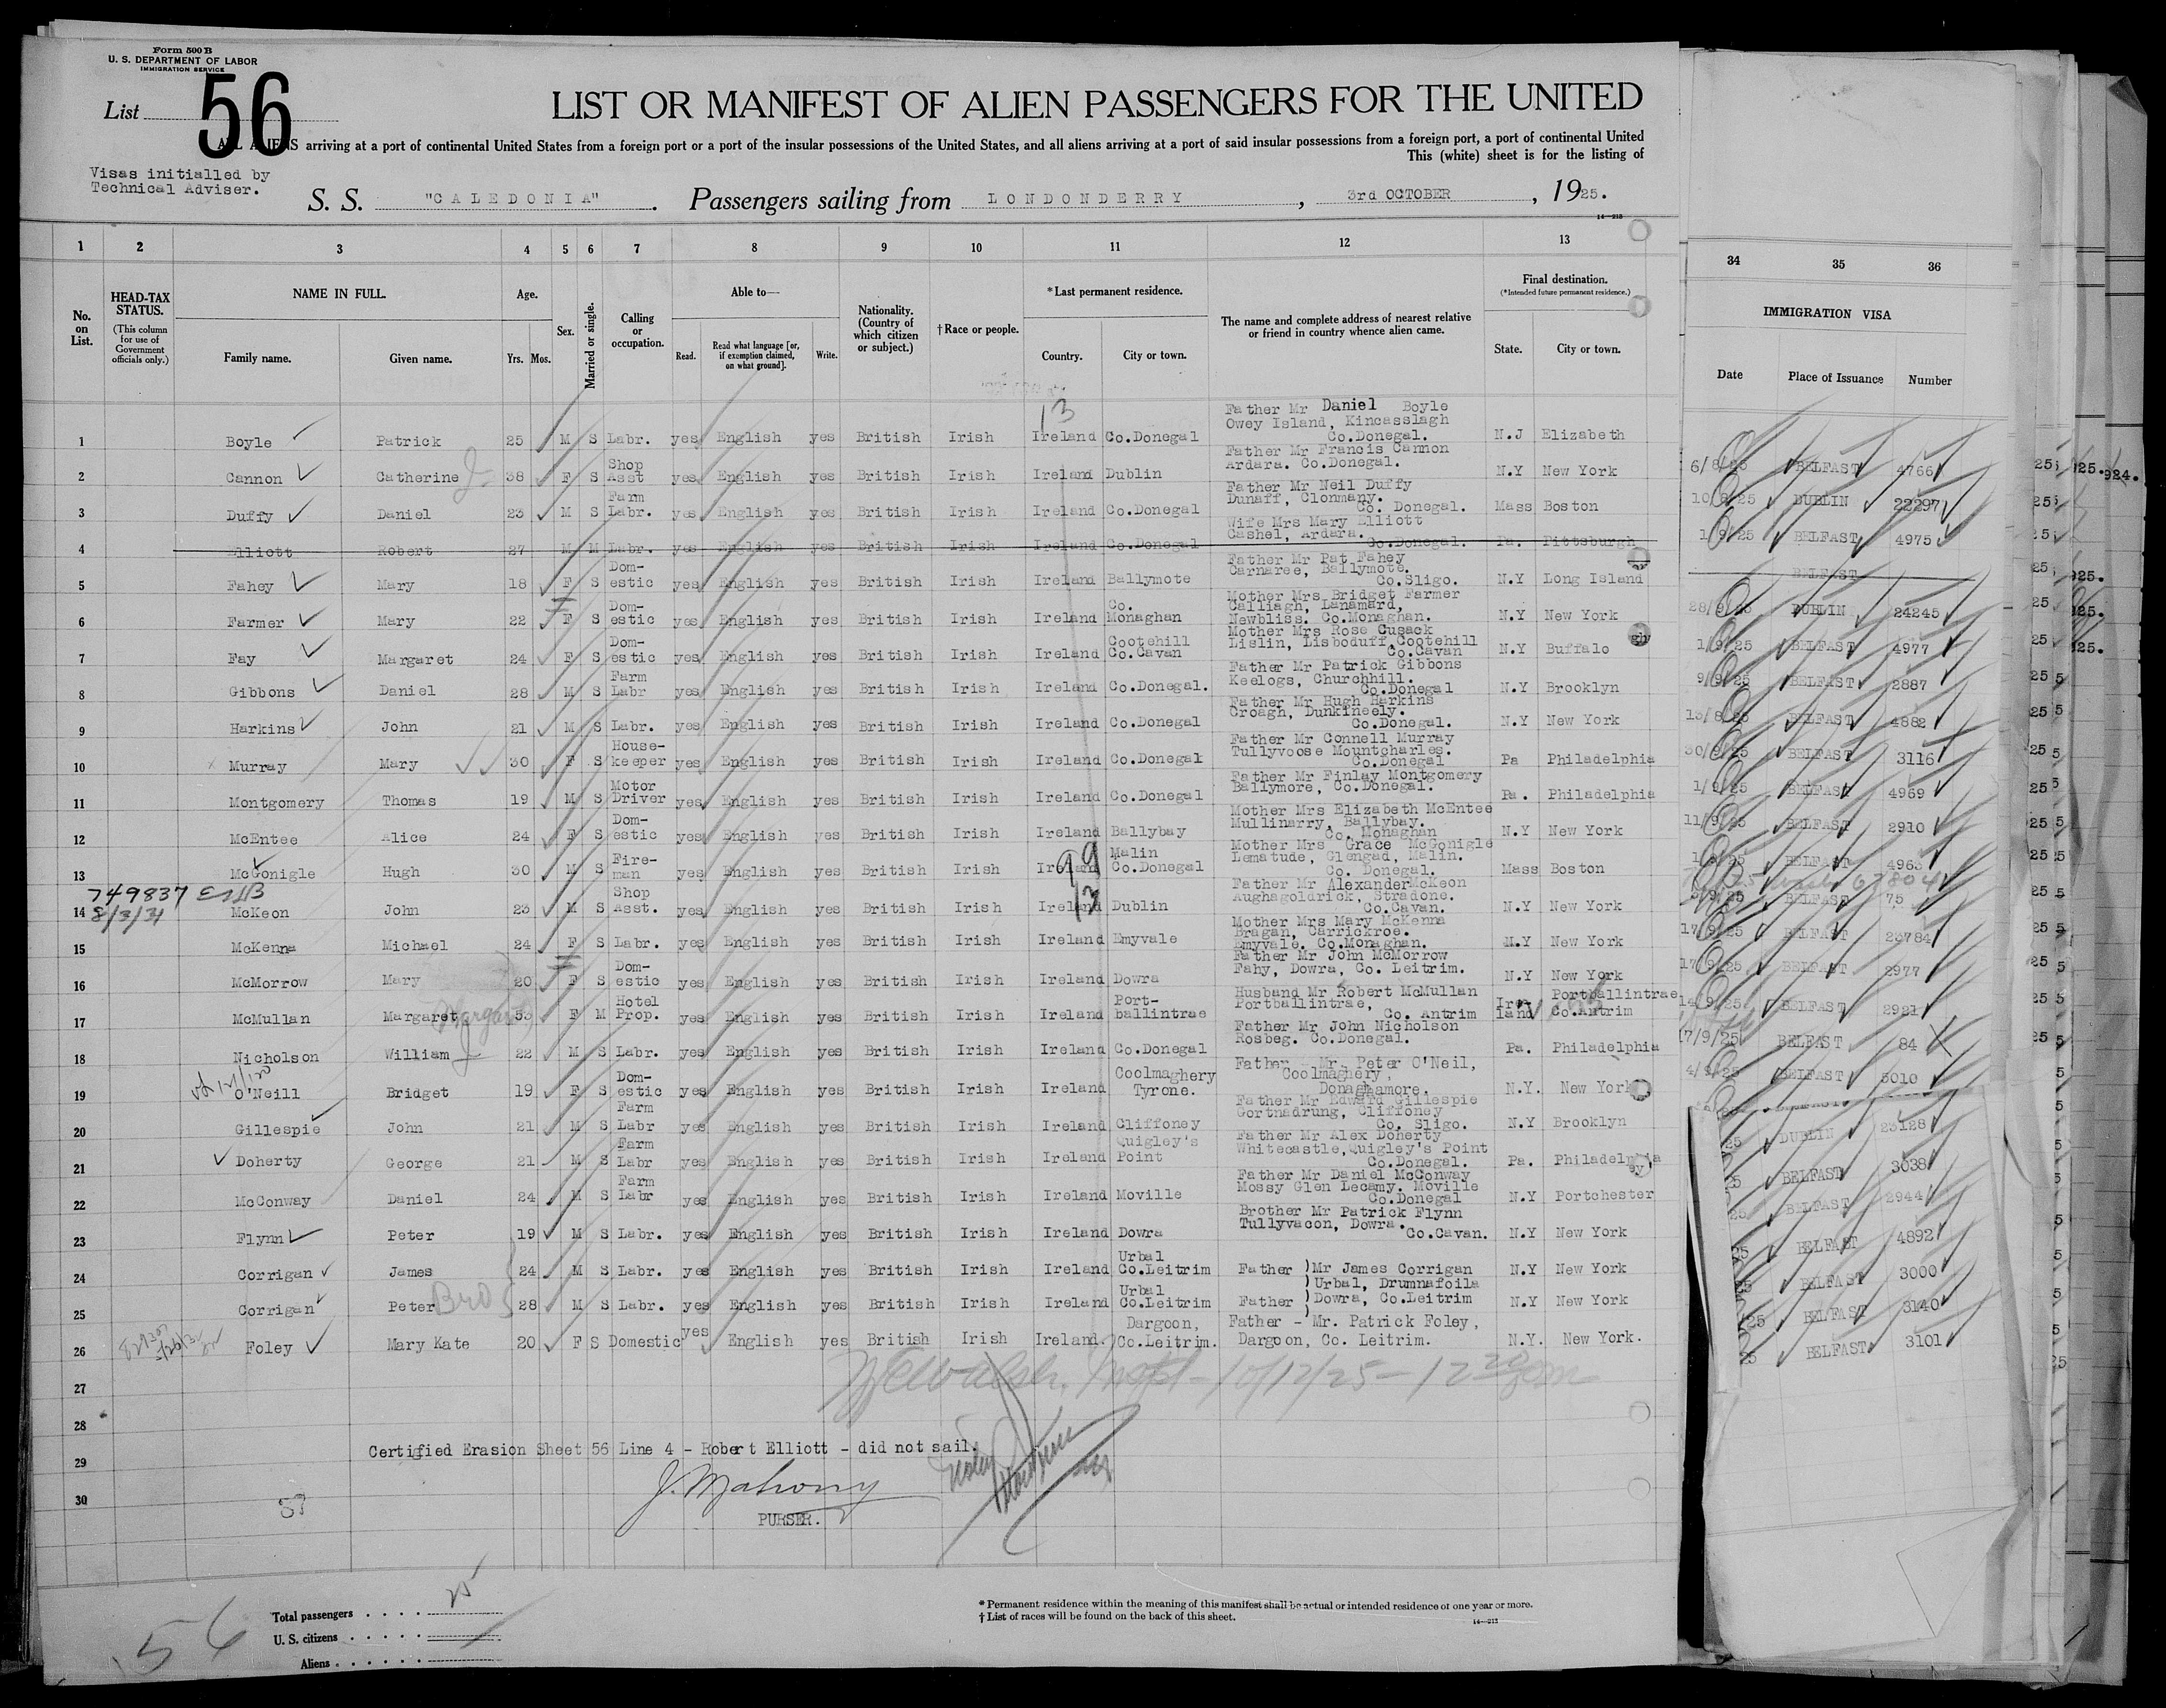 Form 500 B
U. S. DEPARTMENT OF LABOR
IMMIGRATION SERVICE
List 56
LIST OR MANIFEST OF ALIEN PASSENGERS FOR THE UNITED
ALL ALIENS arriving at a port of continental United States from a foreign port or a port of the insular possessions of the United States, and all aliens arriving at a port of said insular possessions from a foreign port, a port of continental United
This (white) sheet is for the listing of
Visas initialled by
Technical Adviser.
S. S. "CALEDONIA". Passengers sailing from LONDONDERRY, 3rd OCTOBER, 1925.
14—213
1 2 3 4 5 6 7 8 9 10 11 12 13 34 35 36
No. on List.
HEAD-TAX STATUS.
(This column for use of Government officials only.)
NAME IN FULL.
Family name. Given name.
Age.
Yrs. Mos.
Sex.
Married or single.
Calling or occupation.
Able to—
Read. Read what language [or, if exemption claimed, on what ground]. Write.
Nationality. (Country of which citizen or subject.)
†Race or people.
*Last permanent residence.
Country. City or town.
The name and complete address of nearest relative or friend in country whence alien came.
Final destination.
(*Intended future permanent residence.)
State. City or town.
IMMIGRATION VISA
Date Place of Issuance Number
13
1 Boyle Patrick 25 M S Labr. yes English yes British Irish Ireland Co.Donegal Father Mr Daniel Boyle Owey Island, Kincasslagh Co.Donegal. N.J Elizabeth 6/8/25 BELFAST 4766
2 Cannon Catherine 38 F S Shop Asst yes English yes British Irish Ireland Dublin Father Mr Francis Cannon Ardara. Co.Donegal. N.Y New York 25 DUBLIN 22297
3 Duffy Daniel 23 M S Farm Labr. yes English yes British Irish Ireland Co.Donegal Father Mr Neil Duffy Dunaff, Clonmany. Co. Donegal. Mass Boston 1/9/25 BELFAST 4975
4 Elliott Robert 27 M M Labr. yes English yes British Irish Ireland Co.Donegal Wife Mrs Mary Elliott Cashel, Ardara. Co.Donegal. Pa. Pittsburgh BELFAST
5 Fahey Mary 18 F S Dom-estic yes English yes British Irish Ireland Ballymote Father Mr Pat Fahey Carnaree, Ballymote. Co.Sligo. N.Y Long Island 28/9/25 DUBLIN 24245
6 Farmer Mary 22 F S Dom-estic yes English yes British Irish Ireland Co. Monaghan Mother Mrs Bridget Farmer Calliagh, Lanamard, Newbliss. Co.Monaghan. N.Y New York 1/9/25 BELFAST 4977
7 Fay Margaret 24 F S Dom-estic yes English yes British Irish Ireland Cootehill Co.Cavan Mother Mrs Rose Cusack Lislin, Lisboduff, Cootehill Co.Cavan N.Y Buffalo 9/9/25 BELFAST 2887
8 Gibbons Daniel 28 M S Farm Labr yes English yes British Irish Ireland Co.Donegal. Father Mr Patrick Gibbons Keelogs, Churchhill. Co.Donegal N.Y Brooklyn 13/8/25 BELFAST 4882
9 Harkins John 21 M S Labr. yes English yes British Irish Ireland Co.Donegal Father Mr Hugh Harkins Croagh, Dunkineely. Co.Donegal. N.Y New York 30/9/25 BELFAST 3116
10 Murray Mary 30 F S House-keeper yes English yes British Irish Ireland Co.Donegal Father Mr Connell Murray Tullyvoose Mountcharles. Co.Donegal Pa Philadelphia 1/9/25 BELFAST 4969
11 Montgomery Thomas 19 M S Motor Driver yes English yes British Irish Ireland Co.Donegal Father Mr Finlay Montgomery Ballymore, Co.Donegal. Pa. Philadelphia 11/9/25 BELFAST 2910
12 McEntee Alice 24 F S Dom-estic yes English yes British Irish Ireland Ballybay Mother Mrs Elizabeth McEntee Mullinarry, Ballybay. Co. Monaghan N.Y New York 25 BELFAST 4963
13 McGonigle Hugh 30 M S Fire-man yes English yes British Irish Ireland Malin Co.Donegal Mother Mrs Grace McGonigle Lematude, Glengad, Malin. Co. Donegal. Mass Boston 25 BELFAST 75
99
13
749837
8/3/31
14 McKeon John 23 M S Shop Asst. yes English yes British Irish Ireland Dublin Father Mr AlexanderMcKeon Aughagoldrick, Stradone. Co.Cavan. N.Y New York 17/9/25 BELFAST 23784
15 McKenna Michael 24 F S Labr. yes English yes British Irish Ireland Emyvale Mother Mrs Mary McKenna Bragan, Carrickroe. Emyvale. Co.Monaghan. N.Y New York 17/9/25 BELFAST 2977
16 McMorrow Mary 20 F S Dom-estic yes English yes British Irish Ireland Dowra Father Mr John McMorrow Fahy, Dowra, Co. Leitrim. N.Y New York 14/9/25 BELFAST 2921
17 McMullan Margaret 53 F M Hotel Prop. yes English yes British Irish Ireland Port-ballintrae Husband Mr Robert McMullan Portballintrae, Co. Antrim Ire-land Portballintrae Co.Antrim 17/9/25 BELFAST 84
Margaret
18 Nicholson William 22 M S Labr. yes English yes British Irish Ireland Co.Donegal Father Mr John Nicholson Rosbeg. Co.Donegal. Pa. Philadelphia 4/9/25 BELFAST 5010
19 O'Neill Bridget 19 F S Dom-estic yes English yes British Irish Ireland Coolmaghery Tyrone. Father Mr. Peter O'Neil, Coolmaghery, Donaghamore. N.Y. New York BELFAST
20 Gillespie John 21 M S Farm Labr yes English yes British Irish Ireland Cliffoney Father Mr Edward Gillespie Gortnadrung, Cliffoney Co. Sligo. N.Y Brooklyn 25 DUBLIN 23128
21 Doherty George 21 M S Farm Labr yes English yes British Irish Ireland Quigley's Point Father Mr Alex Doherty Whitecastle,Quigley's Point Co.Donegal. Pa. Philadelphia 25 BELFAST 3038
22 McConway Daniel 24 M S Farm Labr yes English yes British Irish Ireland Moville Father Mr Daniel McConway Mossy Glen Lecamy. Moville Co.Donegal N.Y Portchester 25 BELFAST 2944
23 Flynn Peter 19 M S Labr. yes English yes British Irish Ireland Dowra Brother Mr Patrick Flynn Tullyvacon, Dowra. Co.Cavan. N.Y New York 25 BELFAST 4892
24 Corrigan James 24 M S Labr. yes English yes British Irish Ireland Urbal Co.Leitrim Father )Mr James Corrigan )Urbal, Drumnafoila N.Y New York 25 BELFAST 3000
25 Corrigan Peter Bro 28 M S Labr. yes English yes British Irish Ireland Urbal Co.Leitrim Father )Dowra, Co.Leitrim ) N.Y New York 25 BELFAST 3140
26 Foley Mary Kate 20 F S Domestic yes English yes British Irish Ireland. Dargoon, Co.Leitrim. Father - Mr. Patrick Foley, Dargoon, Co. Leitrim. N.Y. New York. 25 BELFAST 3101
27
28
29
30
10/12/25
Certified Erasion Sheet 56 Line 4 - Robert Elliott - did not sail.
J. Mahony
PURSER.
56
Total passengers . . . . 25
U. S. citizens . . . . .
Aliens . . . . . .
*Permanent residence within the meaning of this manifest shall be actual or intended residence of one year or more.
†List of races will be found on the back of this sheet.
14—213